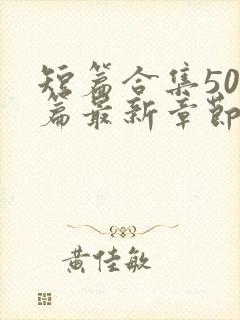 短篇合集50
篇最新章節
黄佳敏